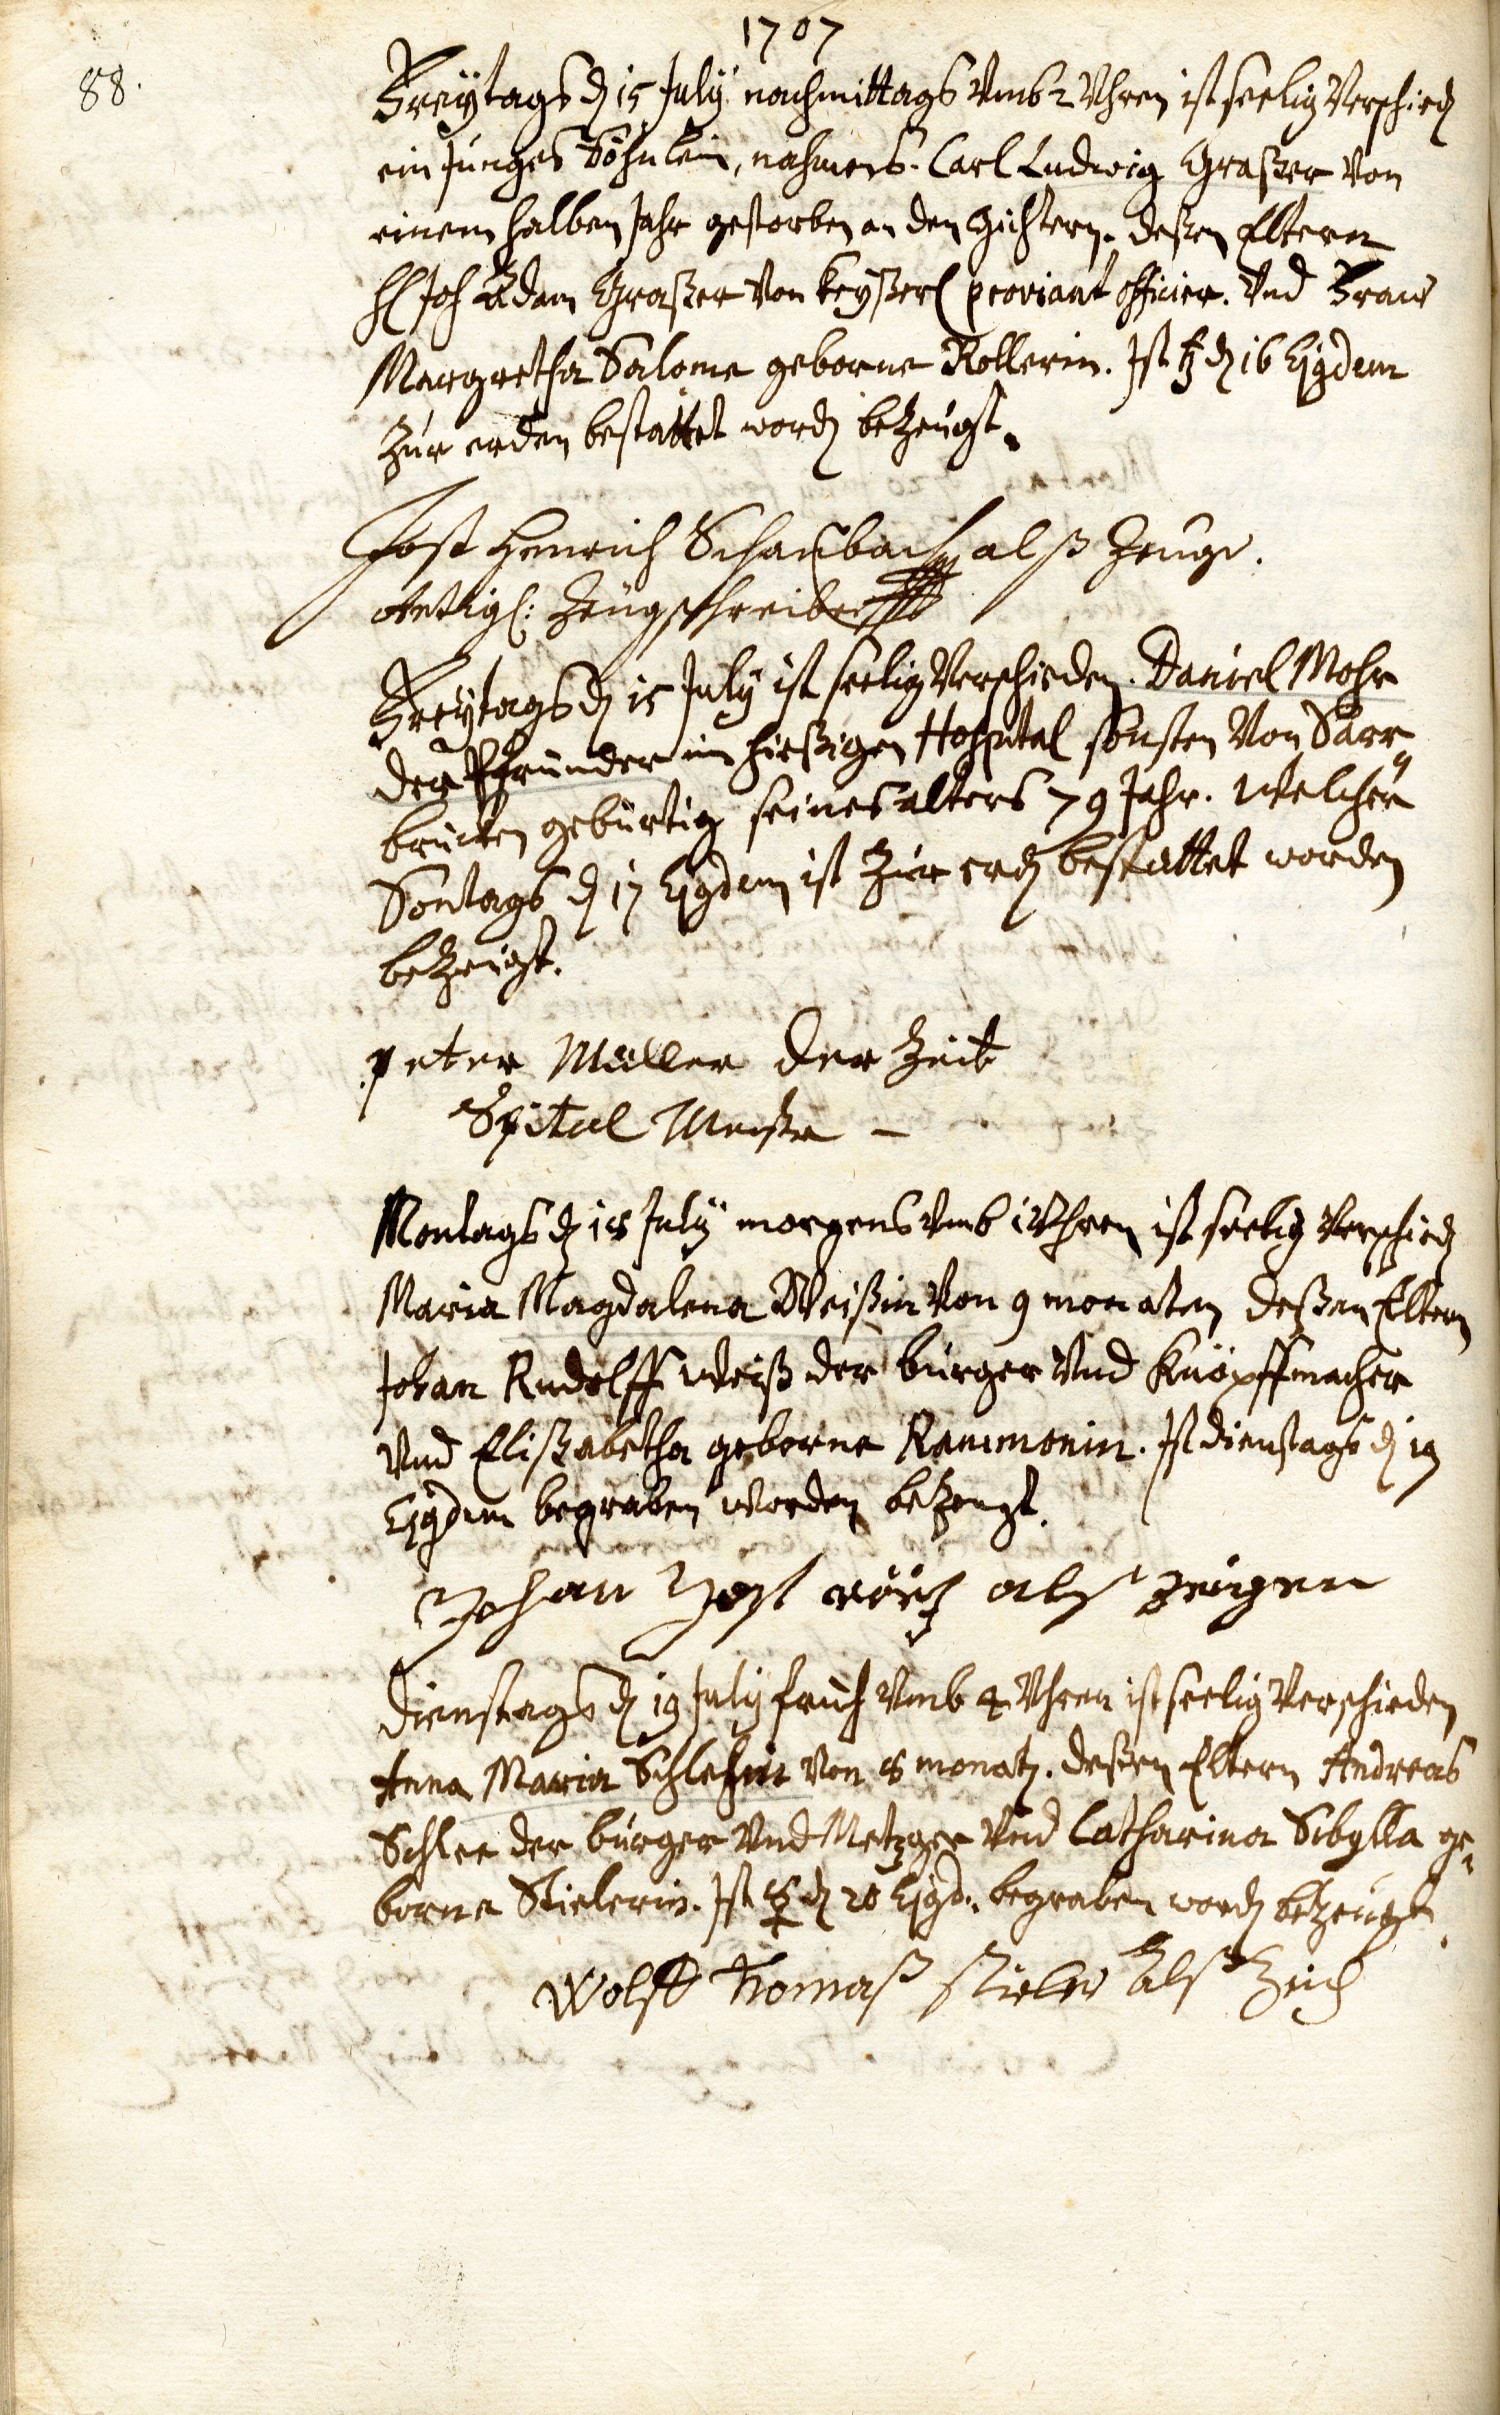 1707
88.
Freytags d 15 July nachmittags Umb 2 Uhren ist seelig Verschied
ein junges Söhnlein, nahmens. Carl Ludwig Graßer Von
einem halben Jahr gestorben an den Gichtern. deßen Eltern
H Joh Adam Graßer Von Keyßerl proviant officier. Und Fraw
Margretha Salome geborne Rollerin. Ist ♄ d 16 Ejgdem
Zur erden bestattet word bezeugt.
Jost Henrich Schaubach alß Zeuge.
Zeugschreiber
Freytags d 15 July ist seelig Verschieden. Daniel Mohr
der Pfrunder im hiesigen Hospital sonsten Von Sarr„
brucken gebürtig seines alters 79 Jahr. Welcher
Sontags d 17 Ejgdem ist Zur erd bestattet worden
bezeugt.
peter Müller der Zeit
Spital Meister –
Montags d 18 July morgens Umb 1 Uhren ist seelig Verschied
Maria Magdalena Weißin Von 9 monaten deßen Eltern
Johan Rudolff Weiß der burger Und Knöpffmacher
Und Elißabetha geborne Rammonin. Ist dienstags d 19
Ejgdem begraben worden bezeugt.
Johan Jost alß zeugen
Dienstags d 19 July fruh Umb 4 Uhren ist seelig Verschieden
Anna Maria Schlehin Von 8 monat. deßen Eltern Andreas
Schlee der burger Und Metzger Und Catharina Sibylla ge„
borne Stielerin. Ist ☿ d 20 Ejgd. begraben word bezeugt.
Wolff Thomaß Stieler Alß Zeug